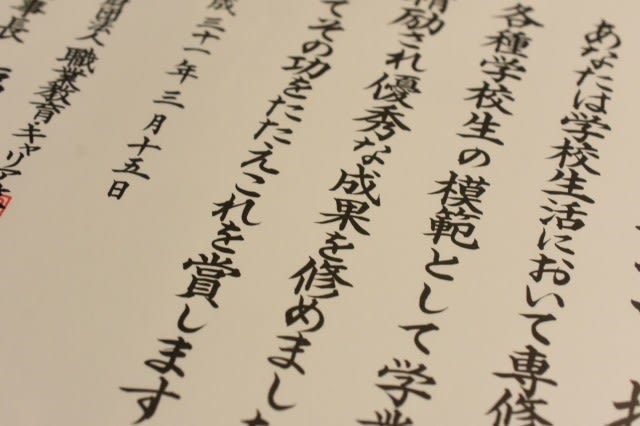 あなたは学校生活において専修
各種学校生の模範として学業
精励され優秀な成果を修めまし
てその功をたたえこれを賞します
成 三十一年 三月十五日
財団法人 職業教育・キャリア
事長